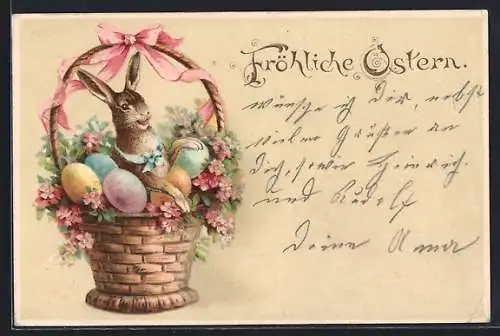 Fröhliche Ostern.
wünsche ich Dir, nebst
vielen Grüßen an
Dich, sowie Heinrich
und Rudolf
Deine Anna